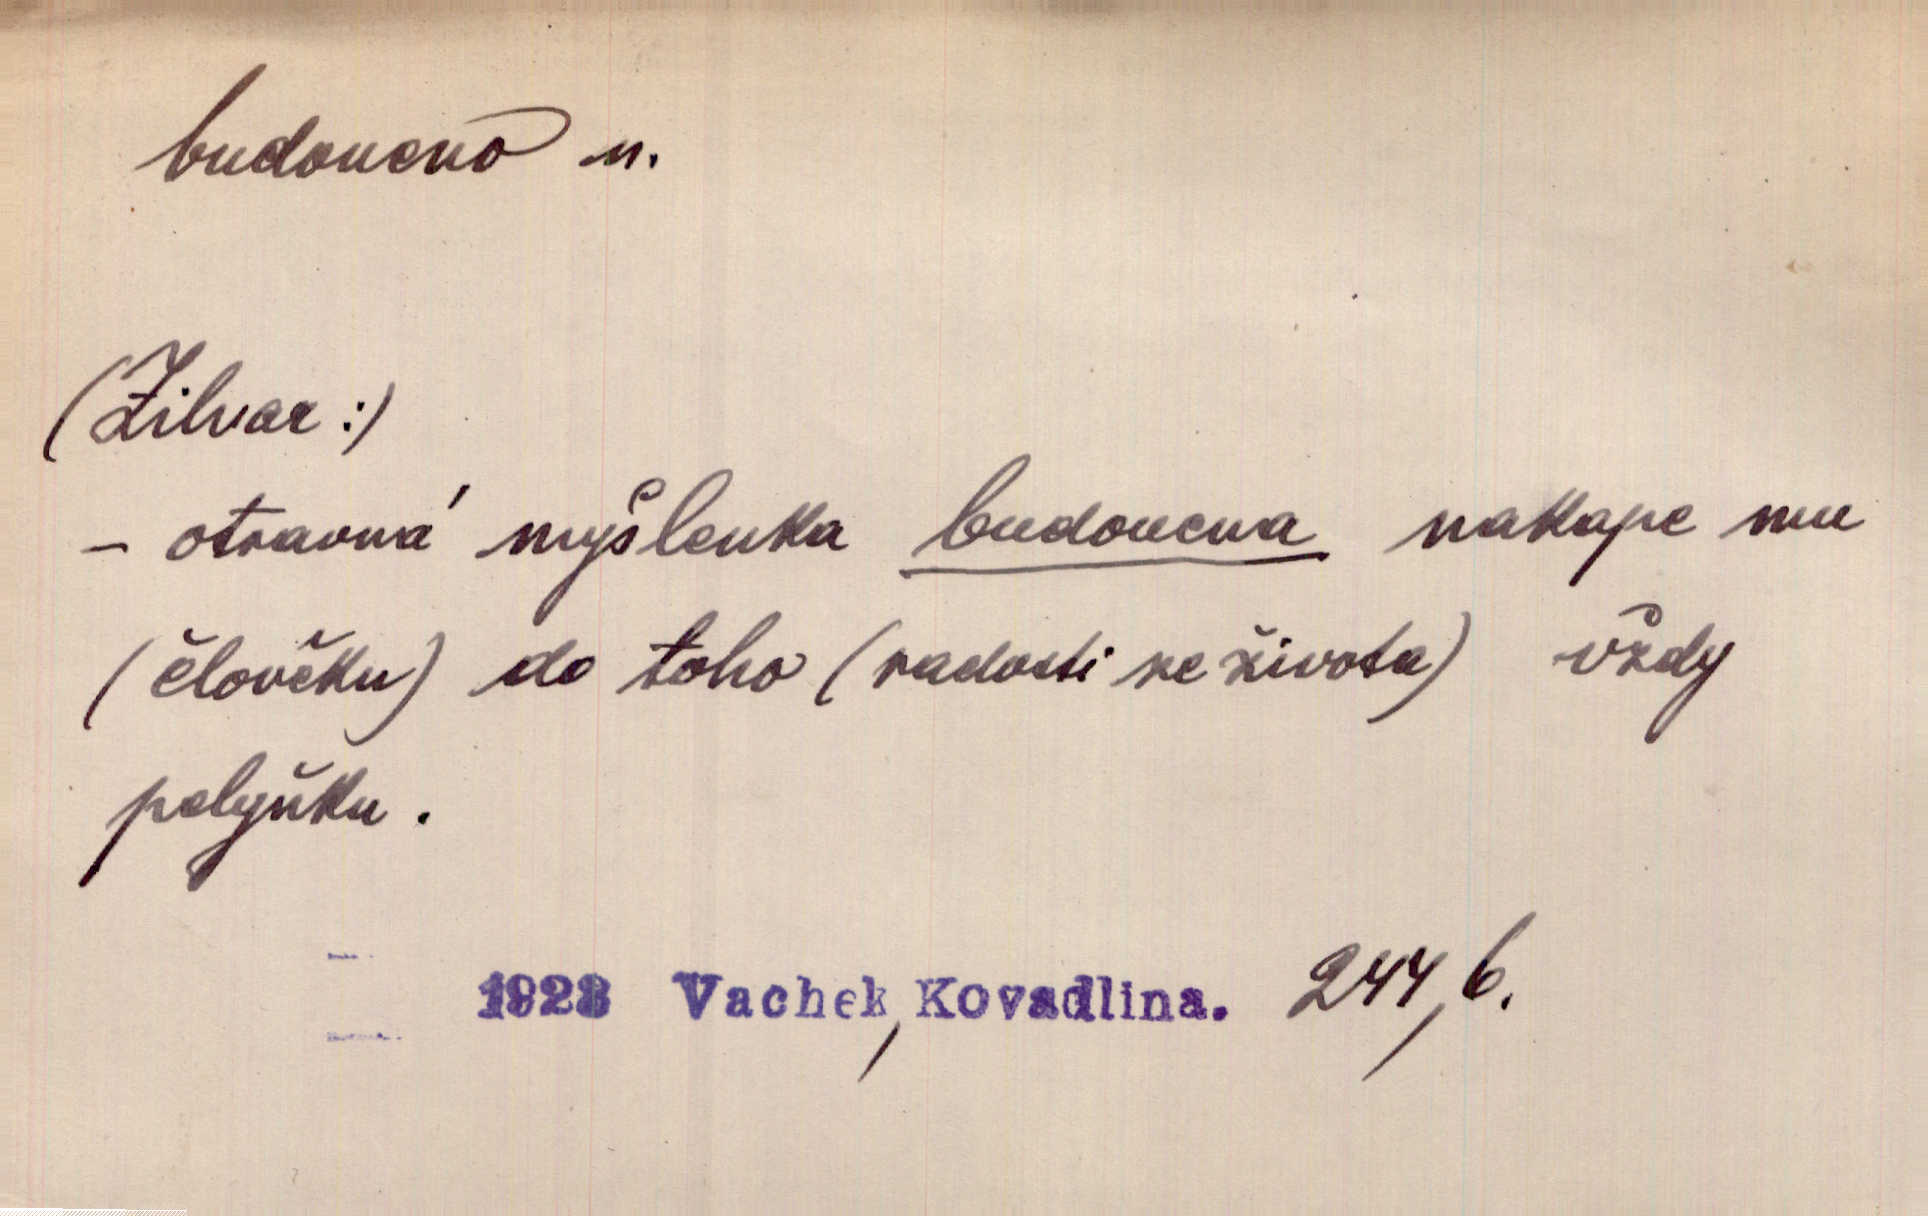 budoucno n.
(Žilvar:)
– otravná myšlenka budoucna nakape mu
(člověku) do toho (radosti ze života) vždy
pelyňku.
1928 Vachek, Kovadlina. 244, 6.